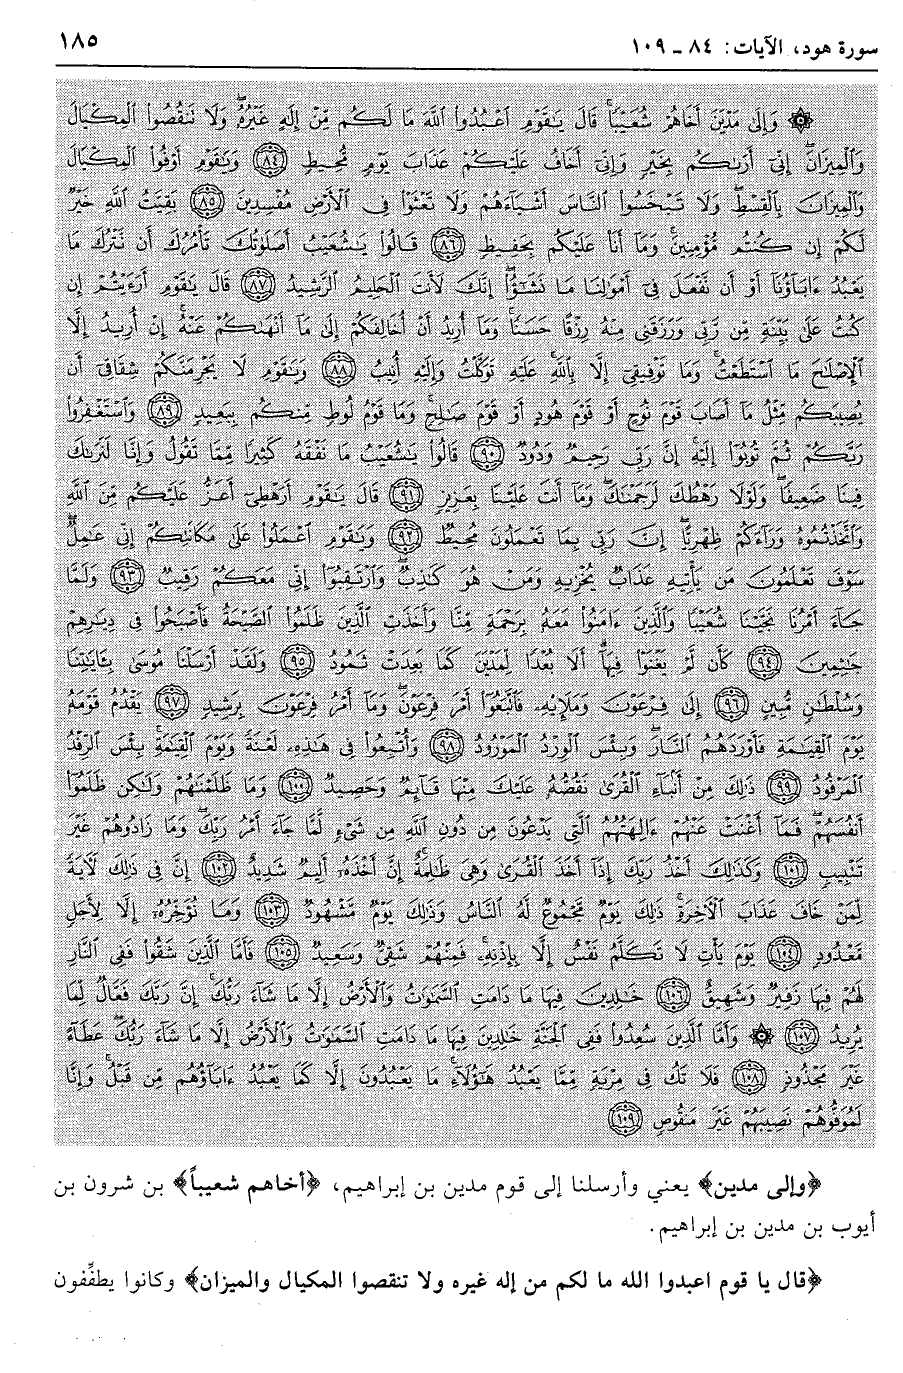 سورة هود، الآيات: ٨٤ - ١٠٩ ١٨٥
۞ وَإِلَىٰ مَدْيَنَ أَخَاهُمْ شُعَيْبًا ۚ قَالَ يَـٰقَوْمِ ٱعْبُدُوا۟ ٱللَّهَ مَا لَكُم مِّنْ إِلَـٰهٍ غَيْرُهُۥ ۖ وَلَا تَنقُصُوا۟ ٱلْمِكْيَالَ
وَٱلْمِيزَانَ ۚ إِنِّىٓ أَرَىٰكُم بِخَيْرٍ وَإِنِّىٓ أَخَافُ عَلَيْكُمْ عَذَابَ يَوْمٍ مُّحِيطٍ ﴿٨٤﴾ وَيَـٰقَوْمِ أَوْفُوا۟ ٱلْمِكْيَالَ
وَٱلْمِيزَانَ بِٱلْقِسْطِ ۖ وَلَا تَبْخَسُوا۟ ٱلنَّاسَ أَشْيَآءَهُمْ وَلَا تَعْثَوْا۟ فِى ٱلْأَرْضِ مُفْسِدِينَ ﴿٨٥﴾ بَقِيَّتُ ٱللَّهِ خَيْرٌ
لَّكُمْ إِن كُنتُم مُّؤْمِنِينَ ۚ وَمَآ أَنَا۠ عَلَيْكُم بِحَفِيظٍ ﴿٨٦﴾ قَالُوا۟ يَـٰشُعَيْبُ أَصَلَوٰتُكَ تَأْمُرُكَ أَن نَّتْرُكَ مَا
يَعْبُدُ ءَابَآؤُنَآ أَوْ أَن نَّفْعَلَ فِىٓ أَمْوَٰلِنَا مَا نَشَـٰٓؤُا۟ ۖ إِنَّكَ لَأَنتَ ٱلْحَلِيمُ ٱلرَّشِيدُ ﴿٨٧﴾ قَالَ يَـٰقَوْمِ أَرَءَيْتُمْ إِن
كُنتُ عَلَىٰ بَيِّنَةٍ مِّن رَّبِّى وَرَزَقَنِى مِنْهُ رِزْقًا حَسَنًا ۚ وَمَآ أُرِيدُ أَنْ أُخَالِفَكُمْ إِلَىٰ مَآ أَنْهَىٰكُمْ عَنْهُ ۚ إِنْ أُرِيدُ إِلَّا
ٱلْإِصْلَـٰحَ مَا ٱسْتَطَعْتُ ۚ وَمَا تَوْفِيقِىٓ إِلَّا بِٱللَّهِ ۚ عَلَيْهِ تَوَكَّلْتُ وَإِلَيْهِ أُنِيبُ ﴿٨٨﴾ وَيَـٰقَوْمِ لَا يَجْرِمَنَّكُمْ شِقَاقِىٓ أَن
يُصِيبَكُم مِّثْلُ مَآ أَصَابَ قَوْمَ نُوحٍ أَوْ قَوْمَ هُودٍ أَوْ قَوْمَ صَـٰلِحٍ ۚ وَمَا قَوْمُ لُوطٍ مِّنكُم بِبَعِيدٍ ﴿٨٩﴾ وَٱسْتَغْفِرُوا۟
رَبَّكُمْ ثُمَّ تُوبُوٓا۟ إِلَيْهِ ۚ إِنَّ رَبِّى رَحِيمٌ وَدُودٌ ﴿٩٠﴾ قَالُوا۟ يَـٰشُعَيْبُ مَا نَفْقَهُ كَثِيرًا مِّمَّا تَقُولُ وَإِنَّا لَنَرَىٰكَ
فِينَا ضَعِيفًا ۖ وَلَوْلَا رَهْطُكَ لَرَجَمْنَـٰكَ ۖ وَمَآ أَنتَ عَلَيْنَا بِعَزِيزٍ ﴿٩١﴾ قَالَ يَـٰقَوْمِ أَرَهْطِىٓ أَعَزُّ عَلَيْكُم مِّنَ ٱللَّهِ
وَٱتَّخَذْتُمُوهُ وَرَآءَكُمْ ظِهْرِيًّا ۖ إِنَّ رَبِّى بِمَا تَعْمَلُونَ مُحِيطٌ ﴿٩٢﴾ وَيَـٰقَوْمِ ٱعْمَلُوا۟ عَلَىٰ مَكَانَتِكُمْ إِنِّى عَـٰمِلٌ ۖ
سَوْفَ تَعْلَمُونَ مَن يَأْتِيهِ عَذَابٌ يُخْزِيهِ وَمَنْ هُوَ كَـٰذِبٌ ۖ وَٱرْتَقِبُوٓا۟ إِنِّى مَعَكُمْ رَقِيبٌ ﴿٩٣﴾ وَلَمَّا
جَآءَ أَمْرُنَا نَجَّيْنَا شُعَيْبًا وَٱلَّذِينَ ءَامَنُوا۟ مَعَهُۥ بِرَحْمَةٍ مِّنَّا وَأَخَذَتِ ٱلَّذِينَ ظَلَمُوا۟ ٱلصَّيْحَةُ فَأَصْبَحُوا۟ فِى دِيَـٰرِهِمْ
جَـٰثِمِينَ ﴿٩٤﴾ كَأَن لَّمْ يَغْنَوْا۟ فِيهَآ ۗ أَلَا بُعْدًا لِّمَدْيَنَ كَمَا بَعِدَتْ ثَمُودُ ﴿٩٥﴾ وَلَقَدْ أَرْسَلْنَا مُوسَىٰ بِـَٔايَـٰتِنَا
وَسُلْطَـٰنٍ مُّبِينٍ ﴿٩٦﴾ إِلَىٰ فِرْعَوْنَ وَمَلَإِي۟هِۦ فَٱتَّبَعُوٓا۟ أَمْرَ فِرْعَوْنَ ۖ وَمَآ أَمْرُ فِرْعَوْنَ بِرَشِيدٍ ﴿٩٧﴾ يَقْدُمُ قَوْمَهُۥ
يَوْمَ ٱلْقِيَـٰمَةِ فَأَوْرَدَهُمُ ٱلنَّارَ ۖ وَبِئْسَ ٱلْوِرْدُ ٱلْمَوْرُودُ ﴿٩٨﴾ وَأُتْبِعُوا۟ فِى هَـٰذِهِۦ لَعْنَةً وَيَوْمَ ٱلْقِيَـٰمَةِ ۚ بِئْسَ ٱلرِّفْدُ
ٱلْمَرْفُودُ ﴿٩٩﴾ ذَٰلِكَ مِنْ أَنۢبَآءِ ٱلْقُرَىٰ نَقُصُّهُۥ عَلَيْكَ ۖ مِنْهَا قَآئِمٌ وَحَصِيدٌ ﴿١٠٠﴾ وَمَا ظَلَمْنَـٰهُمْ وَلَـٰكِن ظَلَمُوٓا۟
أَنفُسَهُمْ ۖ فَمَآ أَغْنَتْ عَنْهُمْ ءَالِهَتُهُمُ ٱلَّتِى يَدْعُونَ مِن دُونِ ٱللَّهِ مِن شَىْءٍ لَّمَّا جَآءَ أَمْرُ رَبِّكَ ۖ وَمَا زَادُوهُمْ غَيْرَ
تَتْبِيبٍ ﴿١٠١﴾ وَكَذَٰلِكَ أَخْذُ رَبِّكَ إِذَآ أَخَذَ ٱلْقُرَىٰ وَهِىَ ظَـٰلِمَةٌ ۚ إِنَّ أَخْذَهُۥٓ أَلِيمٌ شَدِيدٌ ﴿١٠٢﴾ إِنَّ فِى ذَٰلِكَ لَـَٔايَةً
لِّمَنْ خَافَ عَذَابَ ٱلْـَٔاخِرَةِ ۚ ذَٰلِكَ يَوْمٌ مَّجْمُوعٌ لَّهُ ٱلنَّاسُ وَذَٰلِكَ يَوْمٌ مَّشْهُودٌ ﴿١٠٣﴾ وَمَا نُؤَخِّرُهُۥٓ إِلَّا لِأَجَلٍ
مَّعْدُودٍ ﴿١٠٤﴾ يَوْمَ يَأْتِ لَا تَكَلَّمُ نَفْسٌ إِلَّا بِإِذْنِهِۦ ۚ فَمِنْهُمْ شَقِىٌّ وَسَعِيدٌ ﴿١٠٥﴾ فَأَمَّا ٱلَّذِينَ شَقُوا۟ فَفِى ٱلنَّارِ
لَهُمْ فِيهَا زَفِيرٌ وَشَهِيقٌ ﴿١٠٦﴾ خَـٰلِدِينَ فِيهَا مَا دَامَتِ ٱلسَّمَـٰوَٰتُ وَٱلْأَرْضُ إِلَّا مَا شَآءَ رَبُّكَ ۚ إِنَّ رَبَّكَ فَعَّالٌ لِّمَا
يُرِيدُ ﴿١٠٧﴾ ۞ وَأَمَّا ٱلَّذِينَ سُعِدُوا۟ فَفِى ٱلْجَنَّةِ خَـٰلِدِينَ فِيهَا مَا دَامَتِ ٱلسَّمَـٰوَٰتُ وَٱلْأَرْضُ إِلَّا مَا شَآءَ رَبُّكَ ۖ عَطَآءً
غَيْرَ مَجْذُوذٍ ﴿١٠٨﴾ فَلَا تَكُ فِى مِرْيَةٍ مِّمَّا يَعْبُدُ هَـٰٓؤُلَآءِ ۚ مَا يَعْبُدُونَ إِلَّا كَمَا يَعْبُدُ ءَابَآؤُهُم مِّن قَبْلُ ۚ وَإِنَّا
لَمُوَفُّوهُمْ نَصِيبَهُمْ غَيْرَ مَنقُوصٍ ﴿١٠٩﴾
﴿وإلى مدين﴾ يعني وأرسلنا إلى قوم مدين بن إبراهيم، ﴿أخاهم شعيباً﴾ بن شرون بن
أيوب بن مدين بن إبراهيم.
﴿قال يا قوم اعبدوا الله ما لكم من إله غيره ولا تنقصوا المكيال والميزان﴾ وكانوا يطفِّفون